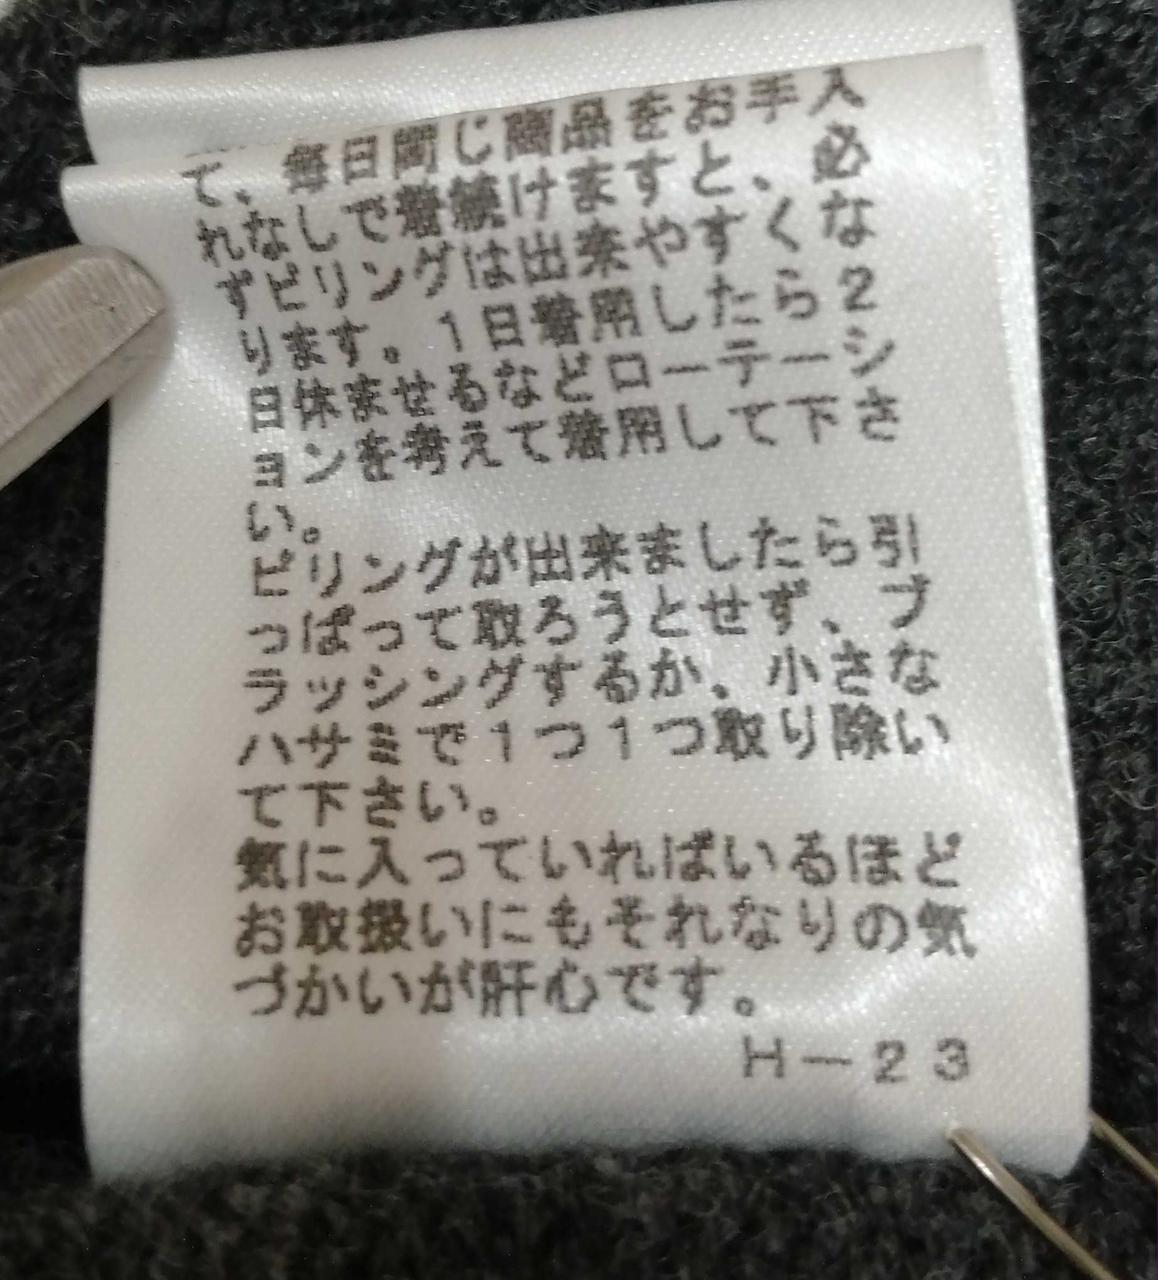 て、毎日同じ商品をお手入
れなしで着続けますと、必
ずピリングは出来やすくな
ります。1日着用したら2
日休ませるなどローテーシ
ョンを考えて着用して下さ
い。
ピリングが出来ましたら引
っぱって取ろうとせず、ブ
ラッシングするか、小さな
ハサミで1つ1つ取り除い
て下さい。
気に入っていればいるほど
お取扱いにもそれなりの気
づかいが肝心です。
H－23